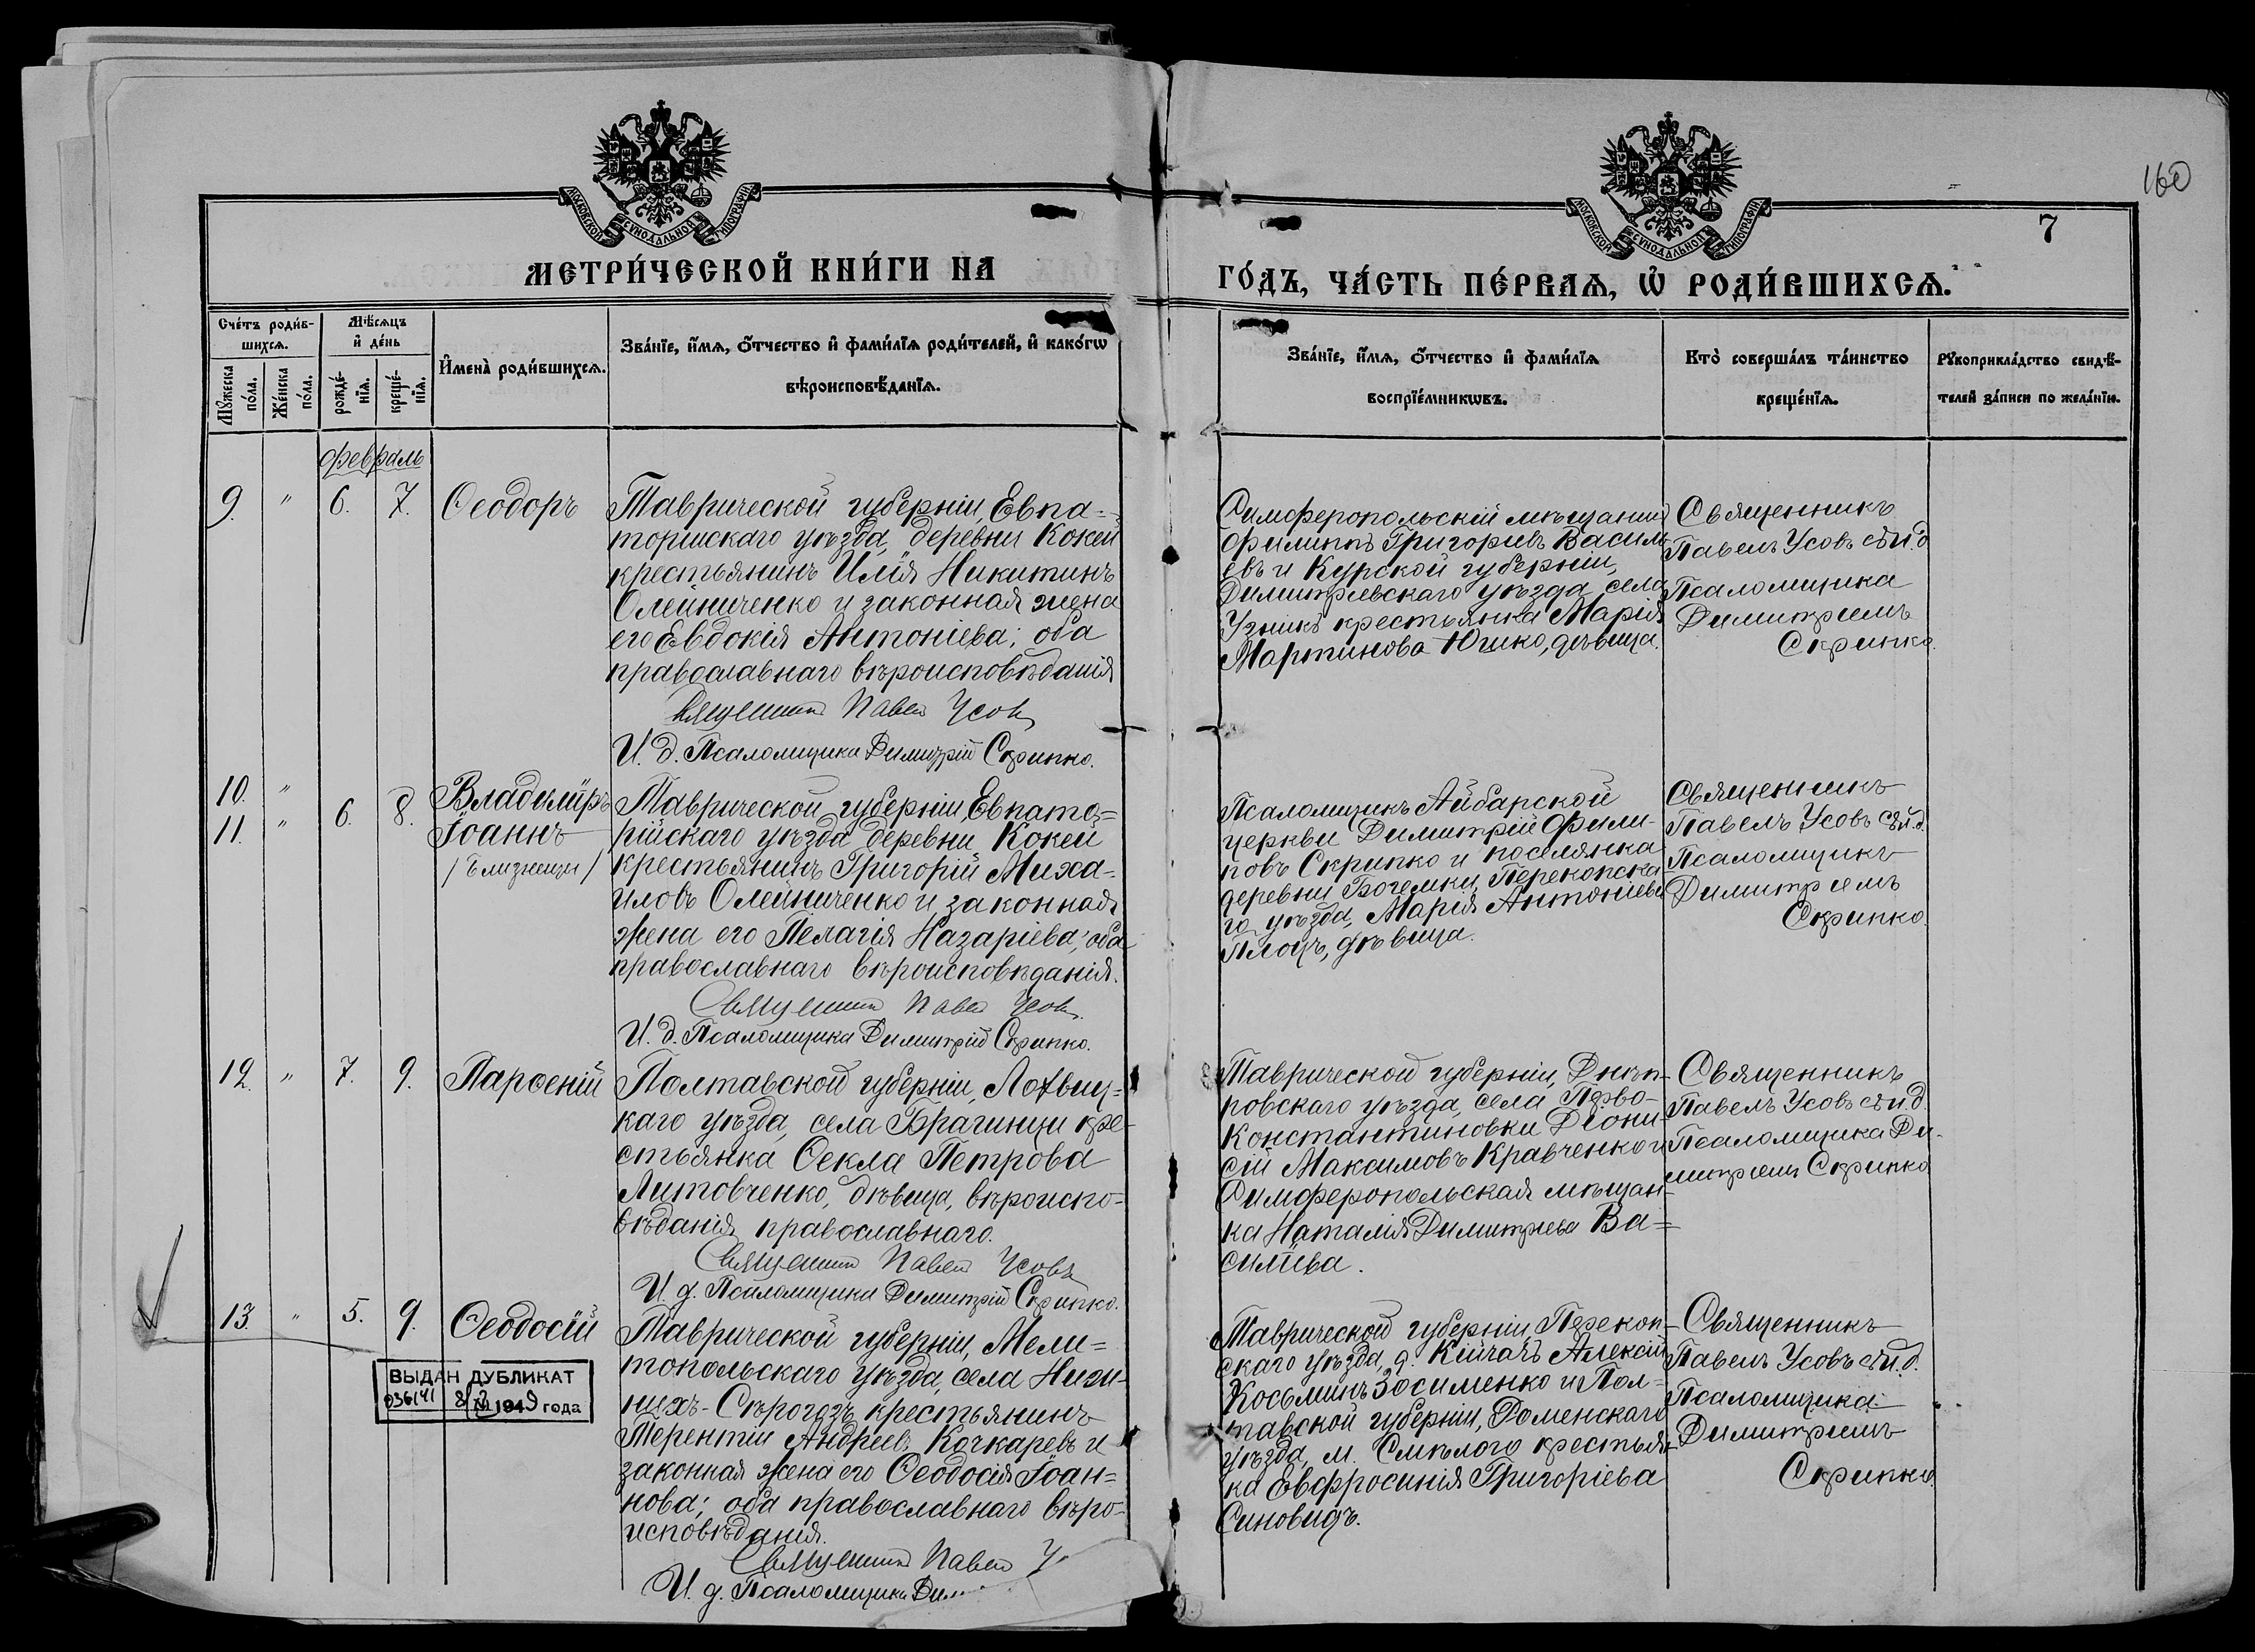 160
7
МОСКОВСКОЙ СѴНОДАЛЬНОЙ ТИПОГРАФІИ
МОСКОВСКОЙ СѴНОДАЛЬНОЙ ТИПОГРАФІИ
МЕТРИ́ЧЕСКОЙ КНИ́ГИ НА
ГО́ДЪ, ЧА́СТЬ ПЕ́РВАѦ, Ѡ҆ РОДИ́ВШИХСѦ.
Сче́тъ роди́в-
шихсѧ.
Мꙋ́жеска
по́ла.
Же́нска
по́ла.
Мѣ́сѧцъ
и҆ де́нь
рожде́-
нїѧ.
креще́-
нїѧ.
И҆мена̀ роди́вшихсѧ.
Зва́нїе, и҆́мѧ, ѻ҆́тчество и҆ фами́лїѧ роди́телей, и҆ како́гѡ
вѣроисповѣ́данїѧ.
Зва́нїе, и҆́мѧ, ѻ҆́тчество и҆ фами́лїѧ
воспрїе́мникѡвъ.
Кто̀ соверша́лъ та́инство
креще́нїѧ.
Рꙋкоприкла́дство свидѣ́-
телей за́писи по жела́нїю.
февраль
9. " 6. 7. Ѳеодоръ
Таврической губерніи, Евпа-
торійскаго уѣзда, деревни Кокей
крестьянинъ Илія Никитинъ
Олейниченко и законная жена
его Евдокія Антоніева; оба
православнаго вѣроисповѣданія
Священникъ Павелъ Усовъ
И. д. Псаломщика Димитрій Скрипко.
Симферопольскій мѣщанинъ
Филиппъ Григорьевъ Василь-
евъ и Курской губерніи,
Димитріевскаго уѣзда, села
крестьянка Марія
Мартинова Юшко, дѣвица.
Священникъ
Павелъ Усовъ съ и. д.
Псаломщика
Димитріемъ
Скрипко.
10. "
11. " 6. 8. Владиміръ
Іоаннъ
/близнецы/
Таврической губерніи, Евпато-
рійскаго уѣзда деревни Кокей
крестьянинъ Григорій Миха-
иловъ Олейниченко и законная
жена его Пелагія Назаріева; оба
православнаго вѣроисповѣданія.
Священникъ Павелъ Усовъ
И. д. Псаломщика Димитрій Скрипко.
Псаломщикъ Айбарской
церкви Димитрій Филип-
повъ Скрипко и поселянка
деревни Богемки, Перекопска-
го уѣзда, Марія Антоніева
дѣвица.
Священникъ
Павелъ Усовъ съ и. д.
Псаломщикъ
Димитріемъ
Скрипко.
12. " 7. 9. Парѳеній
Полтавской губерніи, Лохвиц-
каго уѣзда, села Брагинци кре-
стьянка Ѳекла Петрова
Литовченко, дѣвица, вѣроиспо-
вѣданія православнаго.
Священникъ Павелъ Усовъ
И. д. Псаломщика Димитрій Скрипко.
Таврической губерніи, Днѣп-
ровскаго уѣзда, села Перво-
Константиновки Діони-
сій Максимовъ Кравченко и
Симферопольская мѣщан-
ка Наталія Димитріева Ва-
силіева.
Священникъ
Павелъ Усовъ съ и. д.
Псаломщика Ди-
митріемъ Скрипко
13. " 5. 9. Ѳеодосій
Таврической губерніи, Мели-
топольскаго уѣзда, села Ниж-
нихъ-Сѣрогозъ крестьянинъ
Терентій Андреевъ Кочкаревъ и
законная жена его Ѳеодосія Іоан-
нова; оба православнаго вѣро-
исповѣданія.
Священникъ Павелъ У
И. д. Псаломщика Дим
Таврической губерніи, Перекоп-
скаго уѣзда, д. Кійчакъ Алексій
Косьминъ Зосименко и Пол-
тавской губерніи, Роменскаго
уѣзда, м. Смѣлого крестьян-
ка Евфросинія Григоріева
Синовидъ.
Священникъ
Павелъ Усовъ съ и. д.
Псаломщика
Димитріемъ
Скрипко.
ВЫДАН ДУБЛИКАТ
036141 1949 года